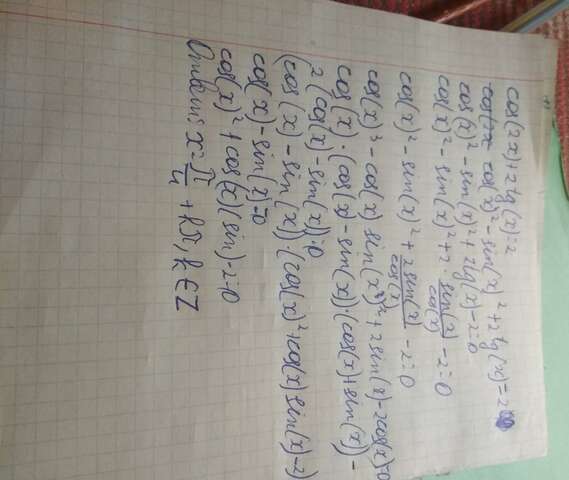 cos(2x)+2tg(x)=2
cos(x)²-sin(x)²+2tg(x)=2
cos(x)²-sin(x)²+2tg(x)-2=0
cos(x)²-sin(x)²+2·sin(x)/cos(x)-2=0
cos(x)²-sin(x)²+2sin(x)/cos(x)-2=0
cos(x)³-cos(x)sin(x)²+2sin(x)-2cos(x)=0
cos(x)·(cos(x)-sin(x))·(cos(x)+sin(x))-
2(cos(x)-sin(x))=0
(cos(x)-sin(x))·(cos(x)²+cos(x)sin(x)-2)
cos(x)-sin(x)=0
cos(x)²+cos(x)(sin)-2=0
Ответ: x=π/4+kπ, k∈Z